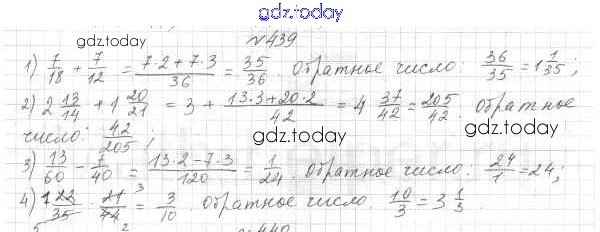 gdz.today
gdz.today
№439
gdz.today
1) 7/18 + 7/12 = (7·2+7·3)/36 = 35/36. Обратное число: 36/35 = 1 1/35;
2) 2 13/14 + 1 20/21 = 3 + (13·3+20·2)/42 = 4 37/42 = 205/42. Обратное
число: 42/205;
gdz.today
gdz.today
3) 13/60 - 7/40 = (13·2-7·3)/120 = 1/24. Обратное число: 24/1 = 24;
4) 1 22/35 · 21/44 3 = 3/10. Обратное число. 10/3 = 3 1/3.
5 2
№440